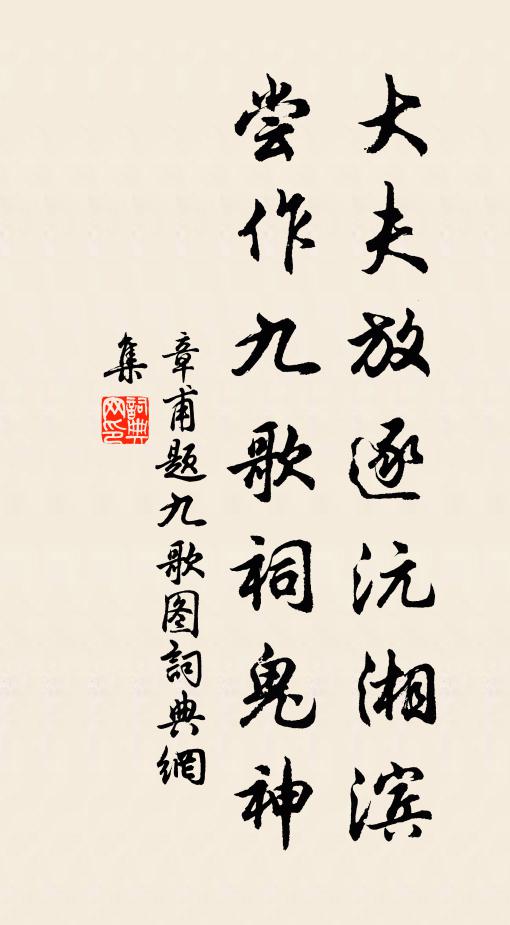 大夫放逐沅湘滨
尝作九歌祠鬼神
章甫题九歌图词典網
集
詞典
网印